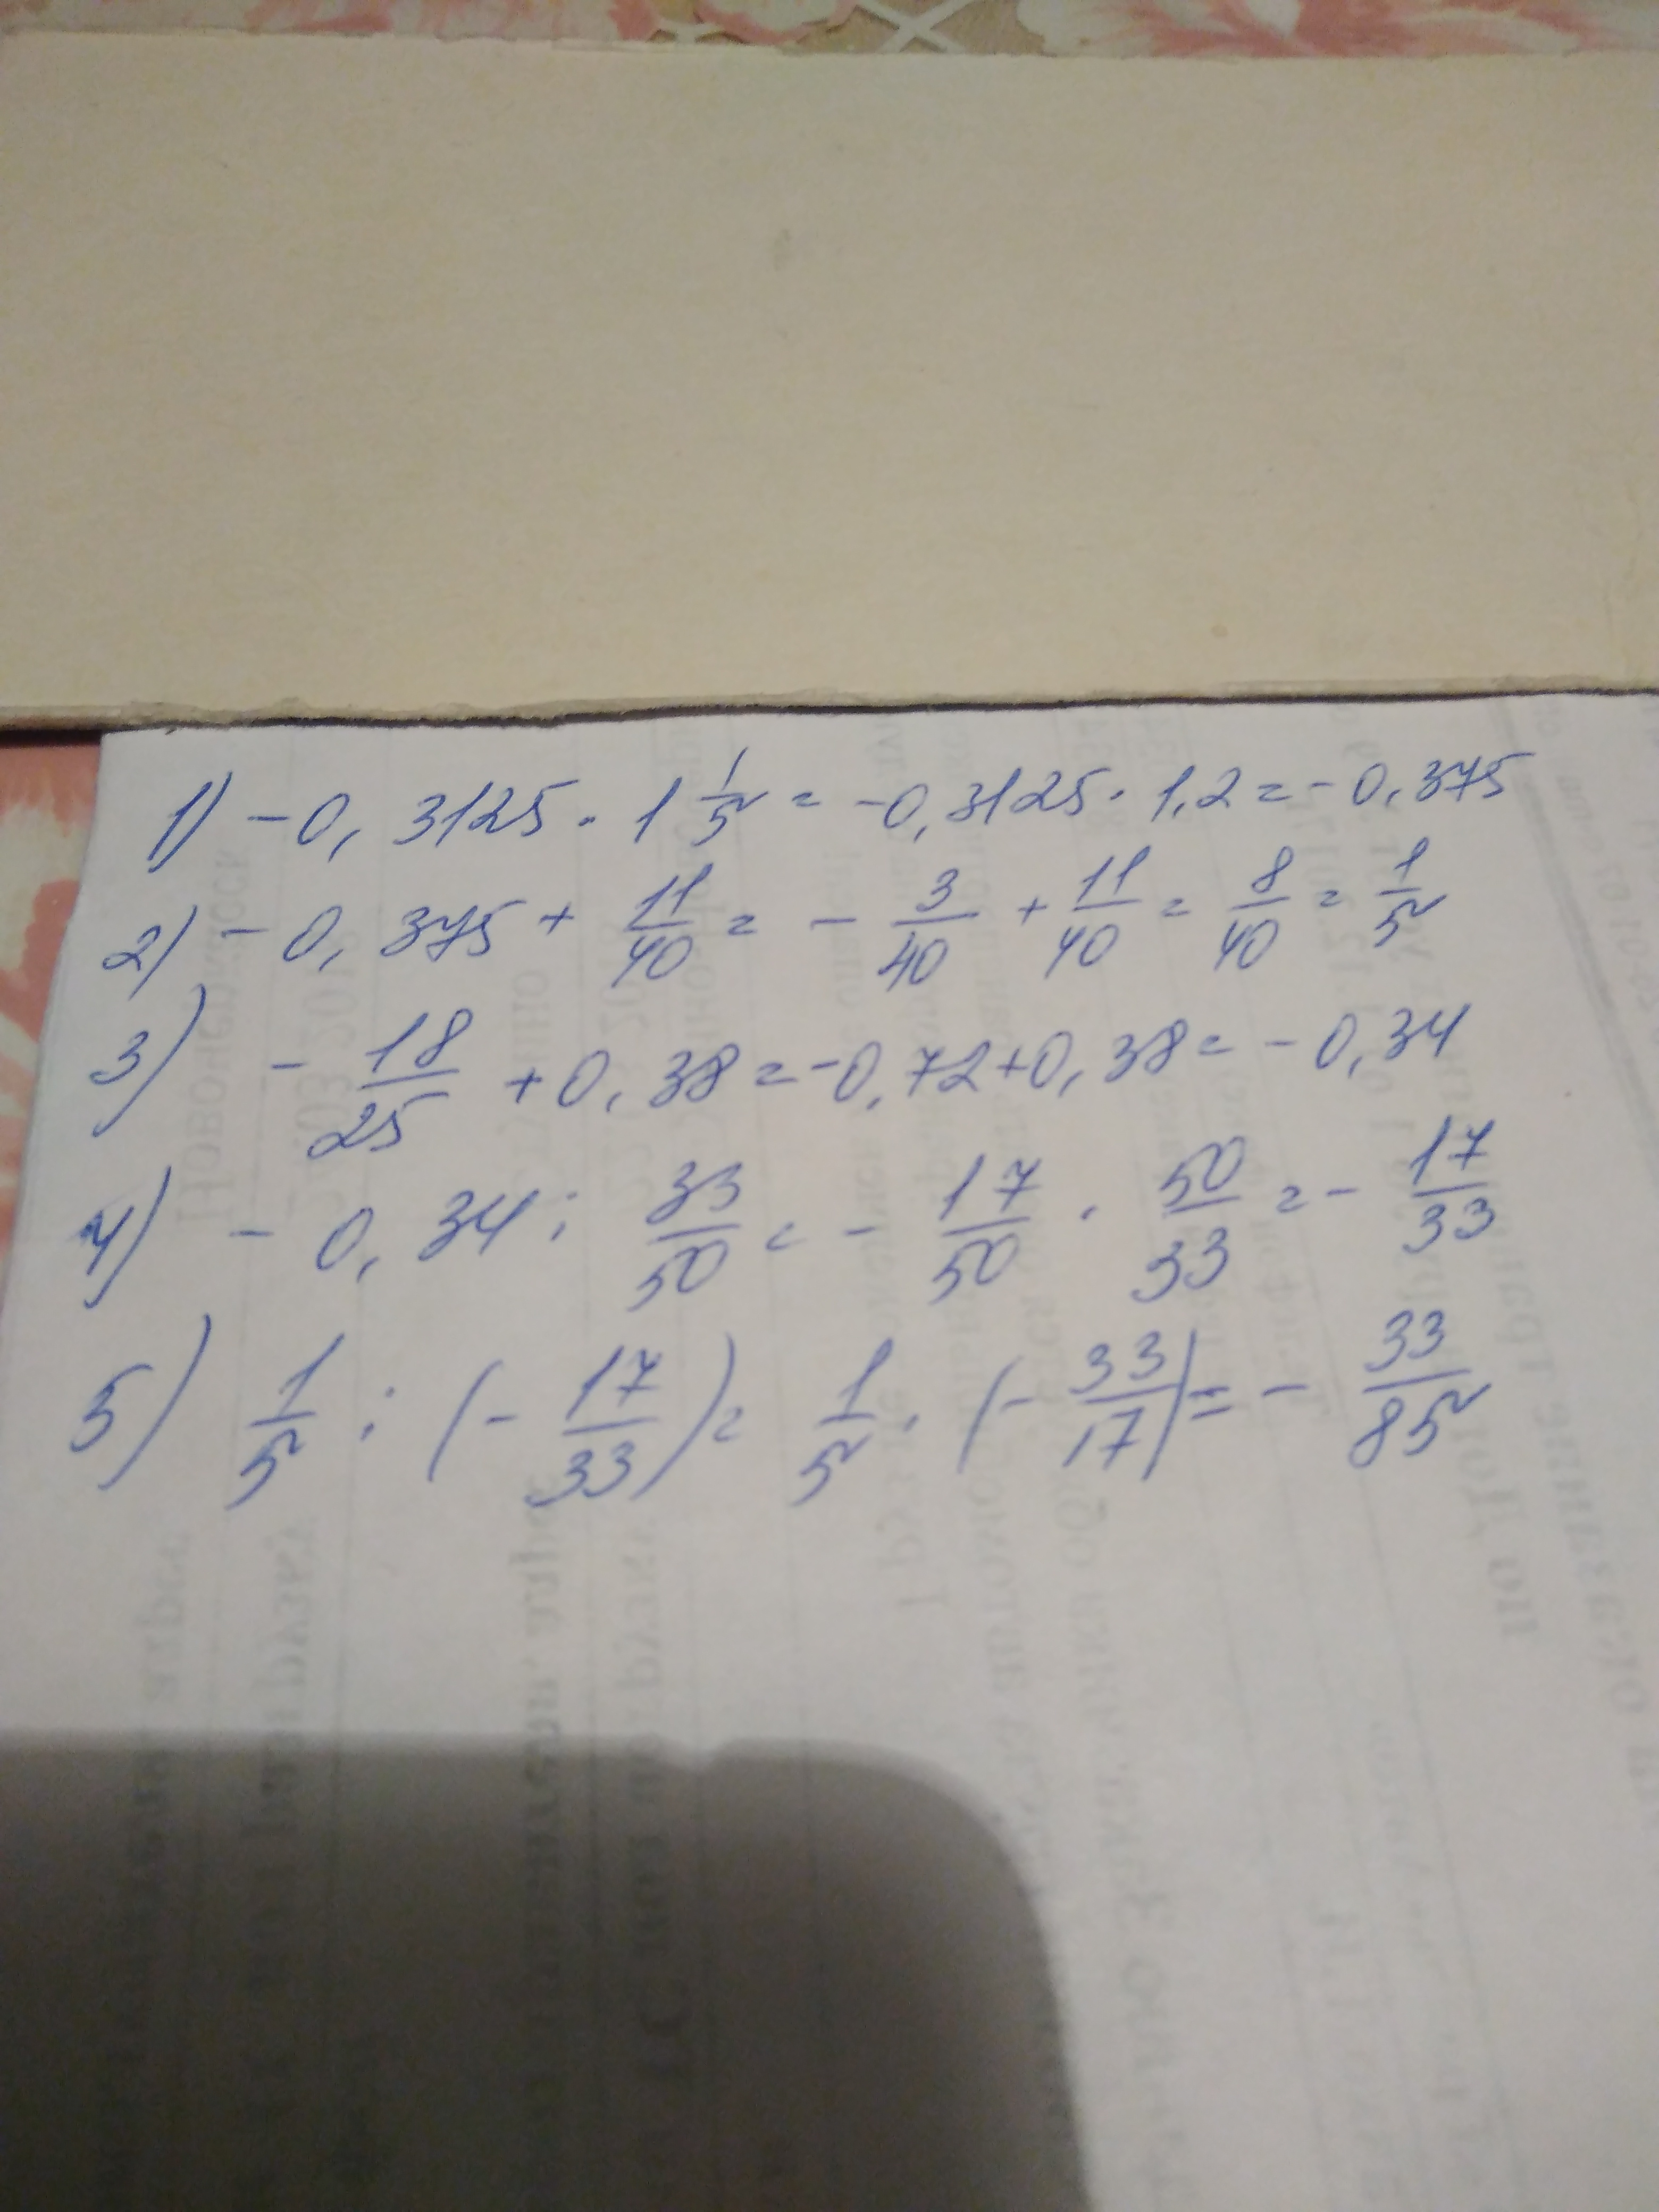 1) -0,3125 · 1 1/5 = -0,3125 · 1,2 = -0,375
2) -0,375 + 11/40 = - 3/40 + 11/40 = 8/40 = 1/5
3) - 18/25 + 0,38 = -0,72 + 0,38 = -0,34
4) -0,34 : 33/50 = - 17/50 · 50/33 = - 17/33
5) 1/5 : (- 17/33) = 1/5 · (- 33/17) = - 33/85